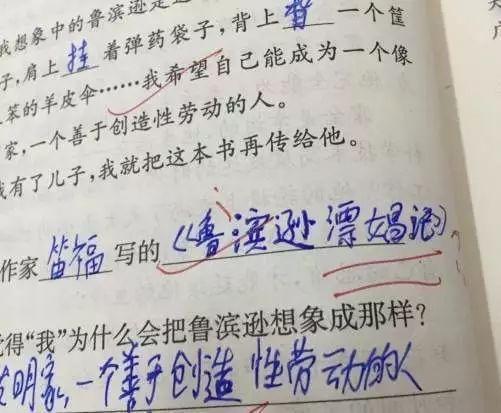 我想象中的鲁滨逊是
子,肩上 挂 着弹药袋子,背上 背 一个筐
笨的羊皮伞……我希望自己能成为一个像
家,一个善于创造性劳动的人。
我有了儿子,我就把这本书再传给他。
作家 笛福 写的《鲁滨逊漂娼记》
觉得“我”为什么会把鲁滨逊想象成那样?
发明家,一个善于创造性劳动的人